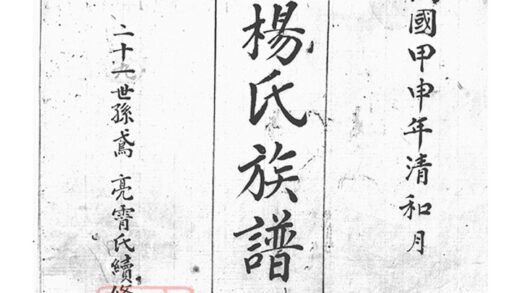 國甲申年清和月
楊氏族譜
二十一世孫鳶亮霄氏續修